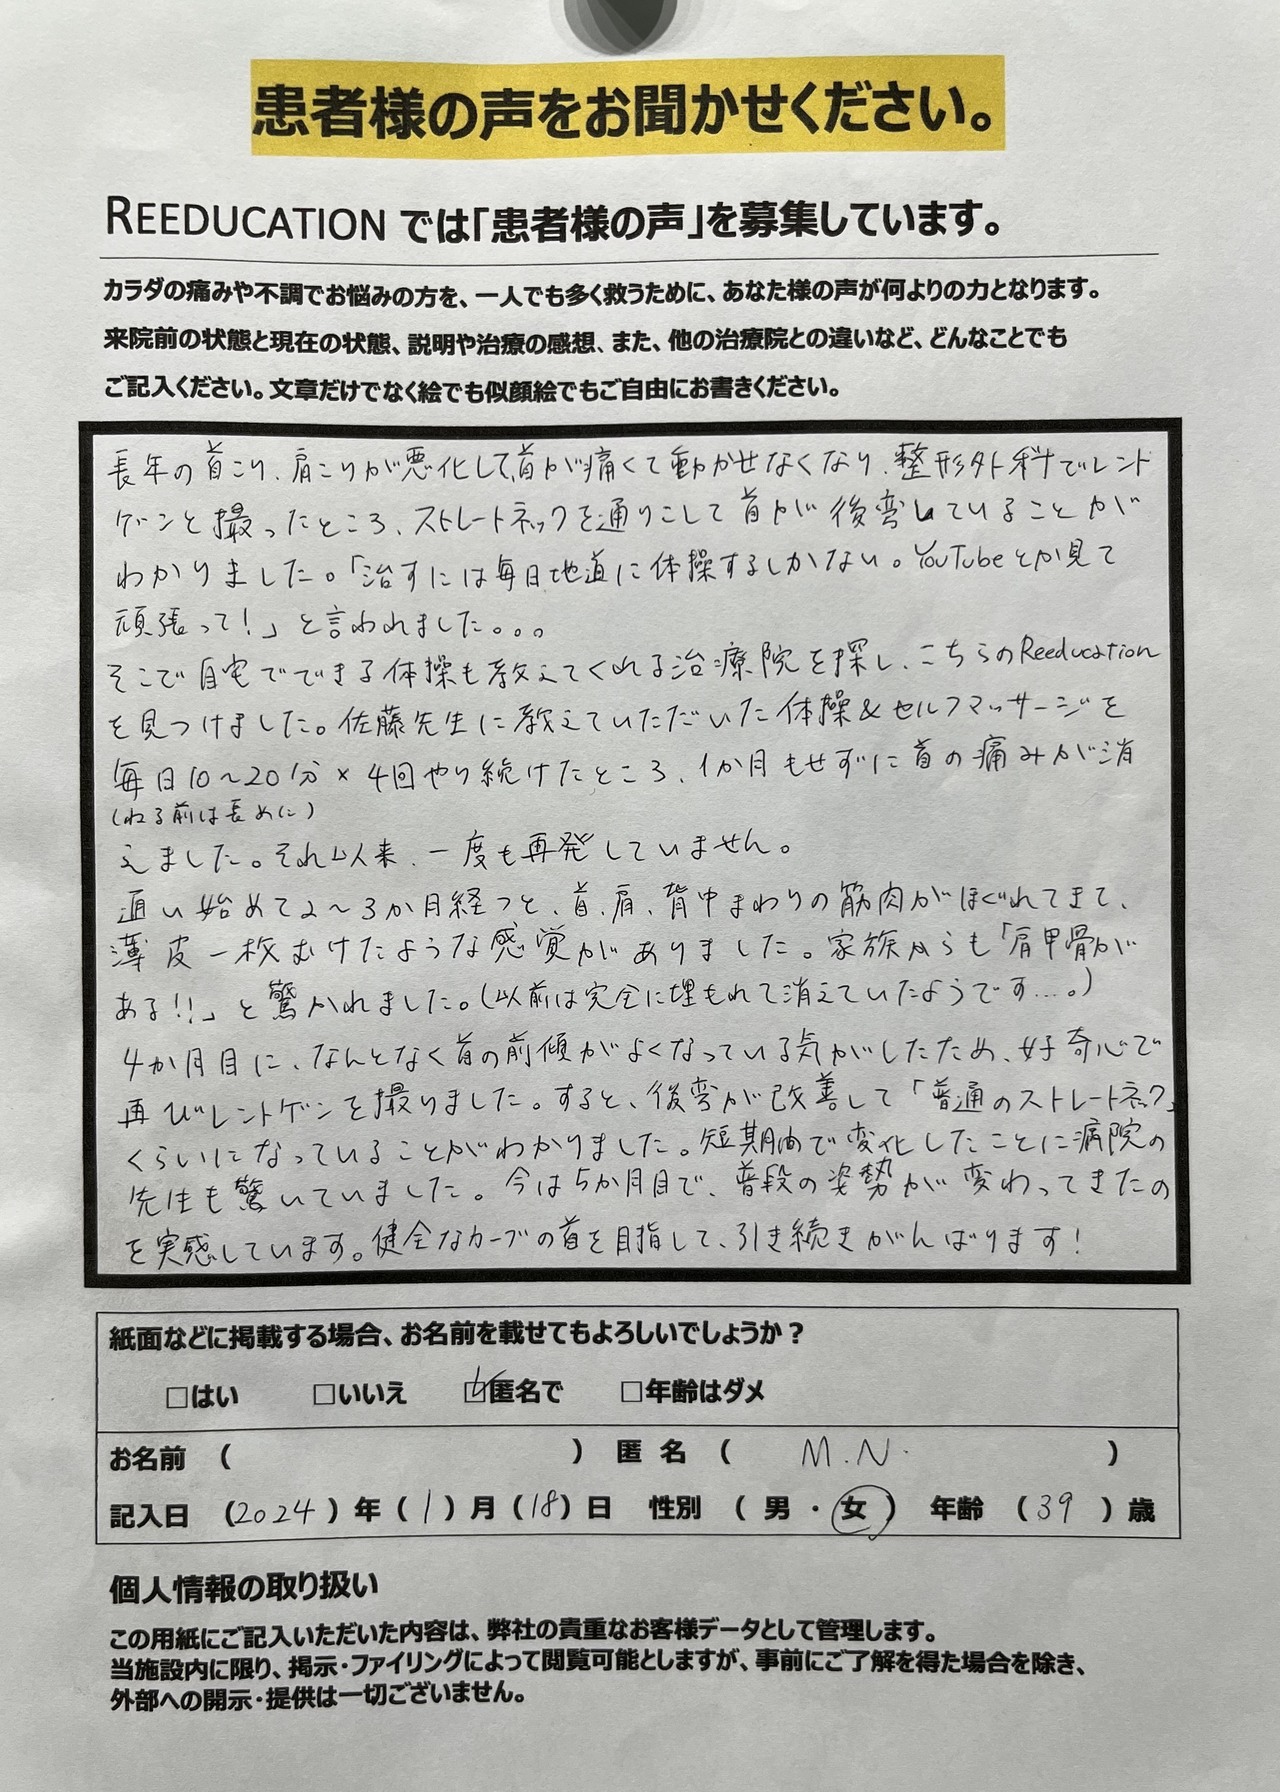 患者様の声をお聞かせください。
REEDUCATION では「患者様の声」を募集しています。
カラダの痛みや不調でお悩みの方を、一人でも多く救うために、あなた様の声が何よりの力となります。
来院前の状態と現在の状態、説明や治療の感想、また、他の治療院との違いなど、どんなことでも
ご記入ください。文章だけでなく絵でも似顔絵でもご自由にお書きください。
長年の首こり、肩こりが悪化して、首が痛くて動かせなくなり、整形外科でレント
ゲンと撮ったところ、ストレートネックを通りこして首が後弯していることが
わかりました。「治すには毎日地道に体操するしかない。YouTubeとか見て
頑張って!」と言われました。。。
そこで自宅でできる体操も教えてくれる治療院を探し、こちらのReeducation
を見つけました。佐藤先生に教えていただいた体操&セルフマッサージを
毎日10〜20分×4回やり続けたところ、1か月もせずに首の痛みが消
(ねる前は長めに)
えました。それ以来、一度も再発していません。
通い始めて2〜3か月経つと、首、肩、背中まわりの筋肉がほぐれてきて、
薄皮一枚むけたような感覚がありました。家族からも「肩甲骨が
ある!!」と驚かれました。(以前は完全に埋もれて消えていたようです…。)
4か月目に、なんとなく首の前傾がよくなっている気がしたため、好奇心で
再びレントゲンを撮りました。すると、後弯が改善して「普通のストレートネック」
くらいになっていることがわかりました。短期間で変化したことに病院の
先生も驚いていました。今は5か月目で、普段の姿勢が変わってきたの
を実感しています。健全なカーブの首を目指して、引き続きがんばります!
紙面などに掲載する場合、お名前を載せてもよろしいでしょうか?
□はい □いいえ ☑匿名で □年齢はダメ
お名前 ( ) 匿名 ( M.N. )
記入日 (2024)年(1)月(18)日 性別 (男・女) 年齢 (39)歳
個人情報の取り扱い
この用紙にご記入いただいた内容は、弊社の貴重なお客様データとして管理します。
当施設内に限り、掲示・ファイリングによって閲覧可能としますが、事前にご了解を得た場合を除き、
外部への開示・提供は一切ございません。